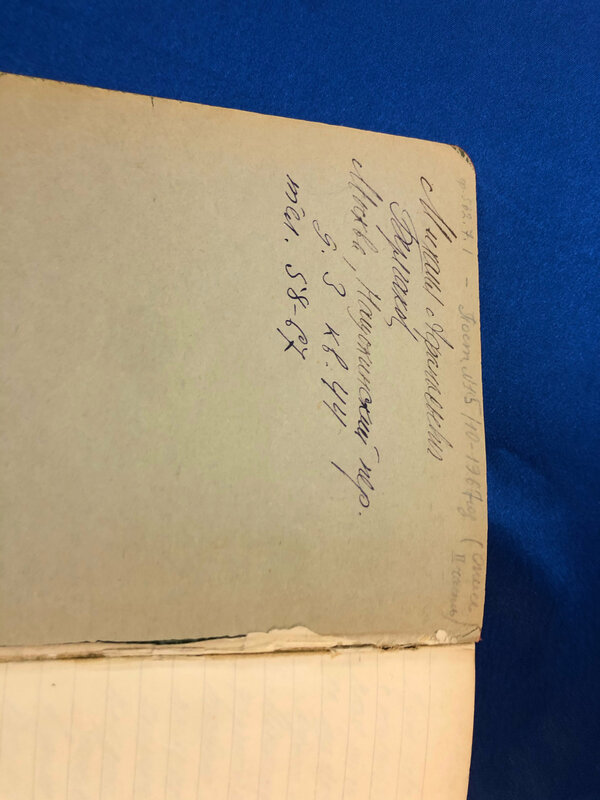 562.7.1 - Пост. №15/10-1967г (опись
II часть)
Михаил Афанасьевич
Булгаков
Москва, Нащокинский пер.
д. 3 кв. 44
тел. 58-67